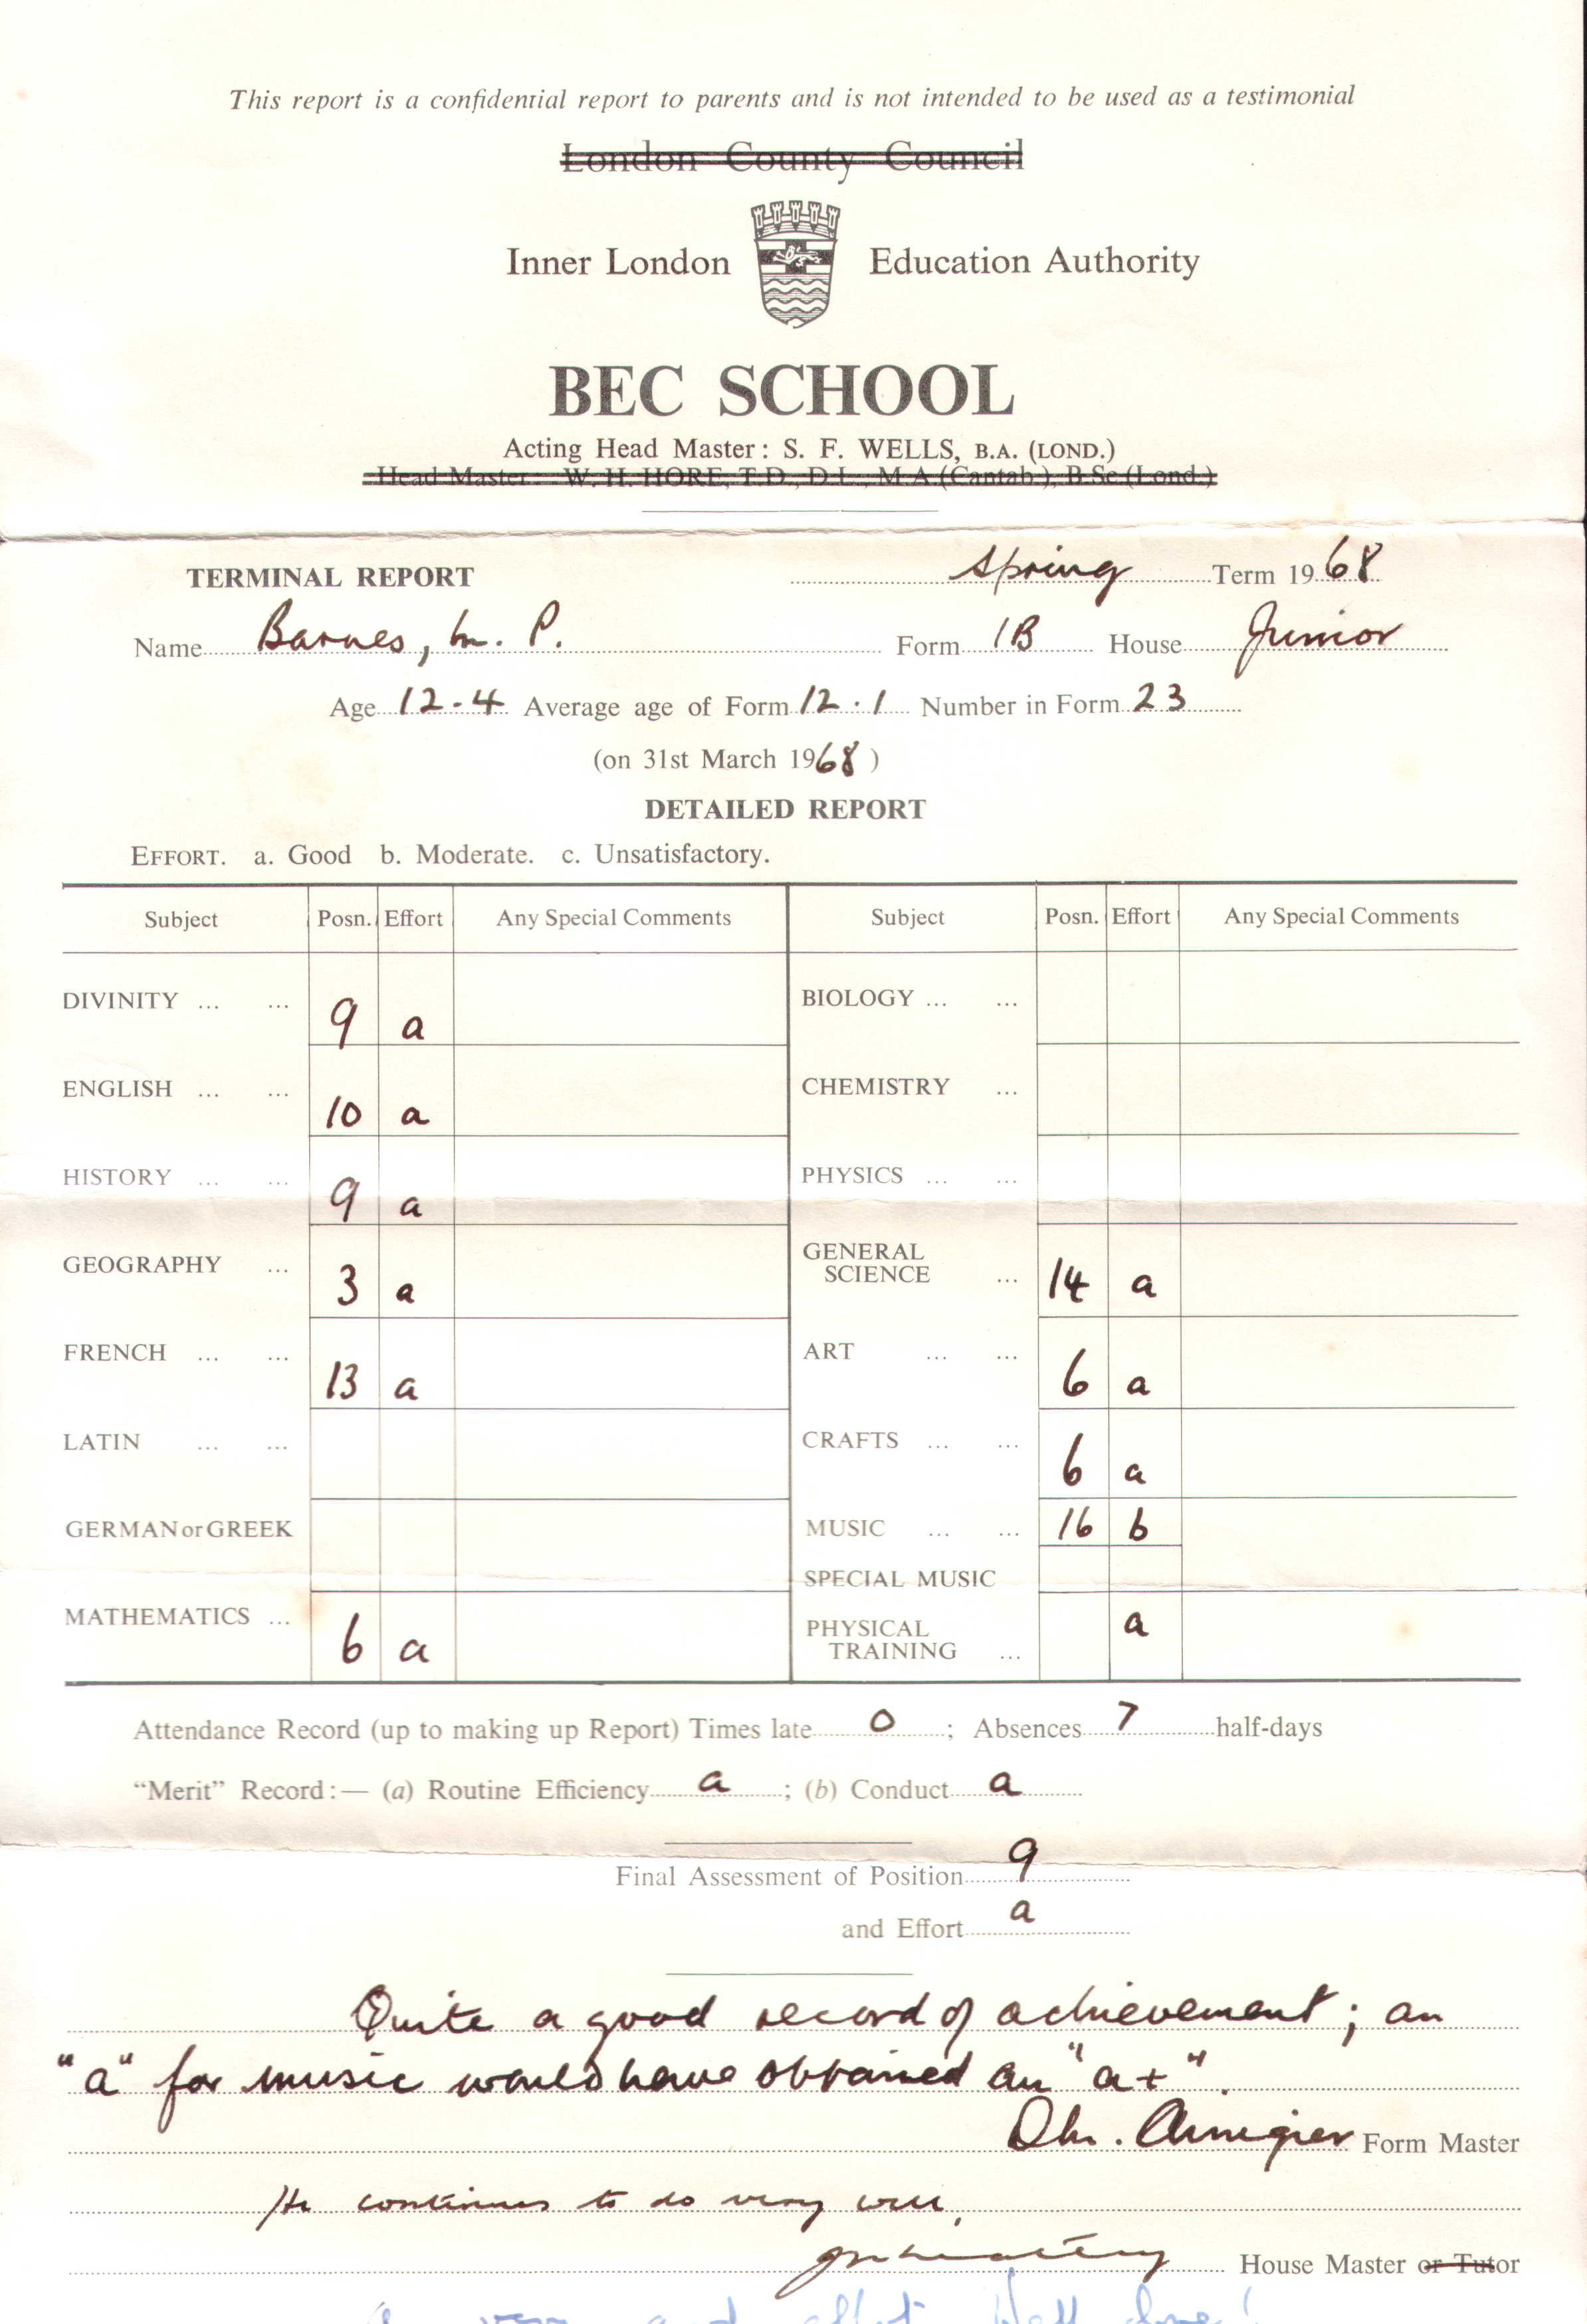 This report is a confidential report to parents and is not intended to be used as a testimonial
London County Council
Inner London Education Authority
BEC SCHOOL
Acting Head Master: S. F. WELLS, B.A. (LOND.)
Head Master: W. H. HORE, T.D., D.L., M.A (Cantab.), B.Sc (Lond.)
TERMINAL REPORT Spring Term 1968
Name Barnes, M. P. Form 1B House Junior
Age 12-4 Average age of Form 12.1 Number in Form 23
(on 31st March 1968)
DETAILED REPORT
EFFORT. a. Good b. Moderate. c. Unsatisfactory.
Subject Posn. Effort Any Special Comments Subject Posn. Effort Any Special Comments
DIVINITY ... ... 9 a
ENGLISH ... ... 10 a
HISTORY ... ... 9 a
GEOGRAPHY ... 3 a
FRENCH ... ... 13 a
LATIN ... ...
GERMAN or GREEK
MATHEMATICS ... 6 a
BIOLOGY ... ...
CHEMISTRY ...
PHYSICS ... ...
GENERAL
SCIENCE ... 14 a
ART ... ... 6 a
CRAFTS ... ... 6 a
MUSIC ... ... 16 b
SPECIAL MUSIC
PHYSICAL
TRAINING ... a
Attendance Record (up to making up Report) Times late 0; Absences 7 half-days
"Merit" Record:— (a) Routine Efficiency a; (b) Conduct a
Final Assessment of Position 9
and Effort a
Quite a good record of achievement; an
"a" for music would have obtained an "a+".
Form Master
He continues to do very well.
House Master or Tutor
effort Well done!